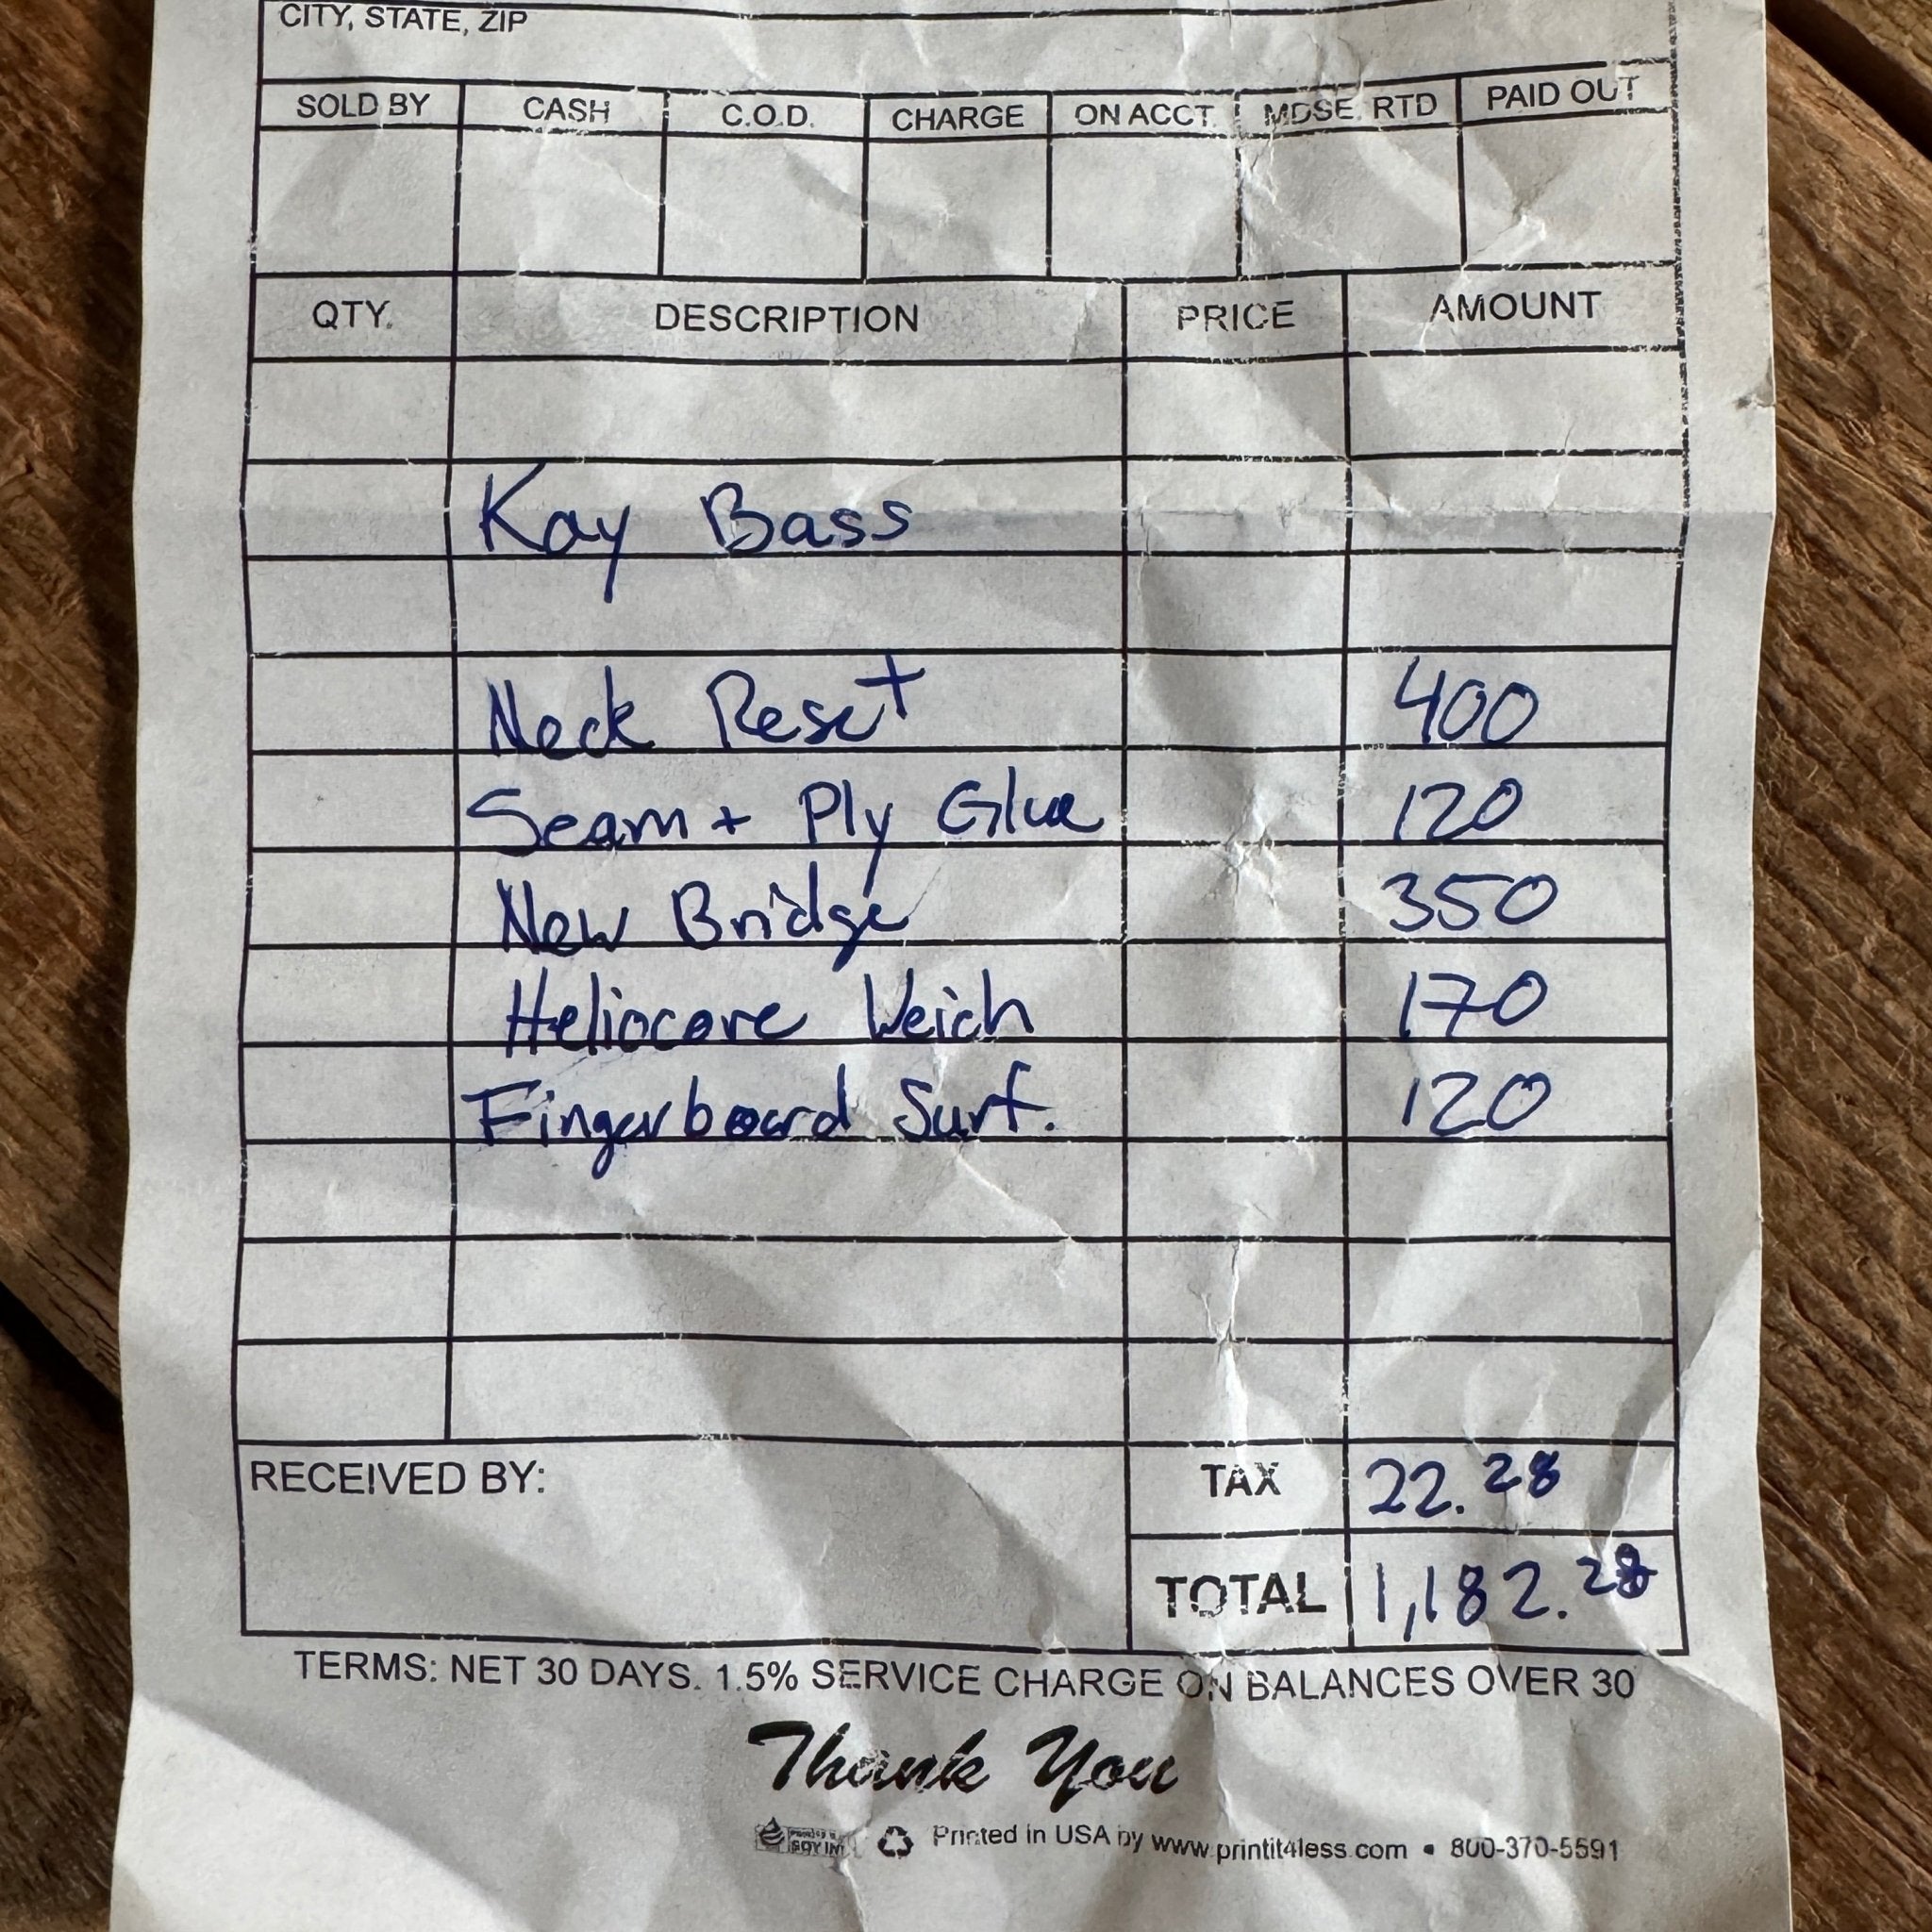 CITY, STATE, ZIP
SOLD BY CASH C.O.D. CHARGE ON ACCT. MDSE. RTD PAID OUT
QTY. DESCRIPTION PRICE AMOUNT
Kay Bass
Neck Reset 400
Seam + Ply Glue 120
New Bridge 350
Heliocore Weich 170
Fingerboard Surf. 120
RECEIVED BY:
TAX 22.28
TOTAL 1,182.28
TERMS: NET 30 DAYS. 1.5% SERVICE CHARGE ON BALANCES OVER 30
Thank You
Printed in USA by www.printit4less.com • 800-370-5591